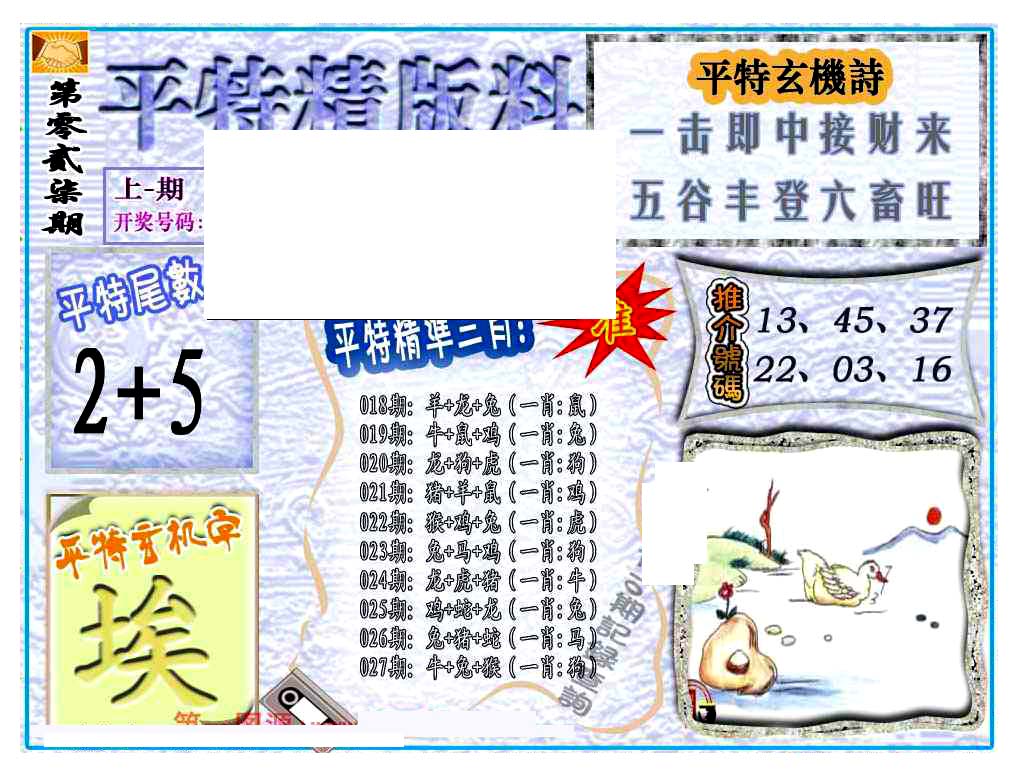 第零贰柒期
平特精版料
上-期
开奖号码:
平特玄機詩
一击即中接财来
五谷丰登六畜旺
平特尾數
2+5
平特精準三肖!
准
推介號碼
13、45、37
22、03、16
018期: 羊+龙+兔(一肖:鼠)
019期: 牛+鼠+鸡(一肖:兔)
020期: 龙+狗+虎(一肖:狗)
021期: 猪+羊+鼠(一肖:鸡)
022期: 猴+鸡+兔(一肖:虎)
023期: 兔+马+鸡(一肖:狗)
024期: 龙+虎+猪(一肖:牛)
025期: 鸡+蛇+龙(一肖:兔)
026期: 兔+猪+蛇(一肖:马)
027期: 牛+兔+猴(一肖:狗)
期記錄查詢
平特玄机字
埃